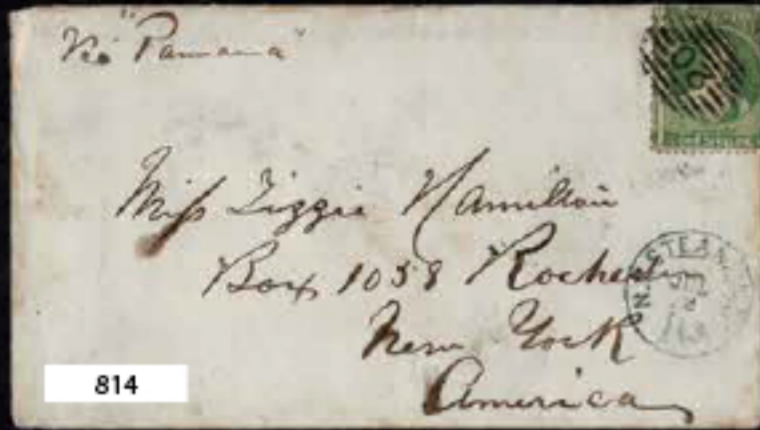 Via "Panama"
Miss Lizzie Hamilton
Box 1058 Rochester
New York
America
N.Y. STEAM
814